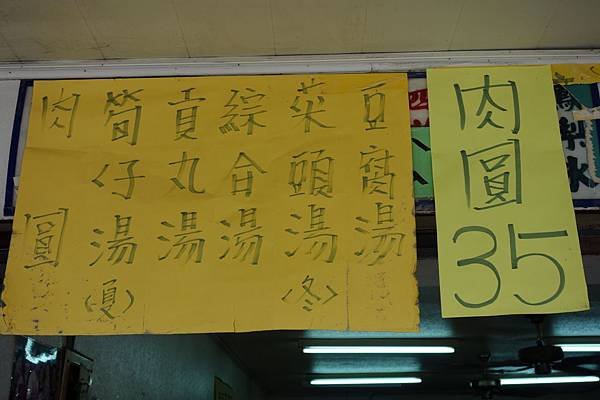 肉圓
筍仔湯〈夏〉
貢丸湯
綜合湯
菜頭湯〈冬〉
豆腐湯
肉圓
35
鳳梨冰